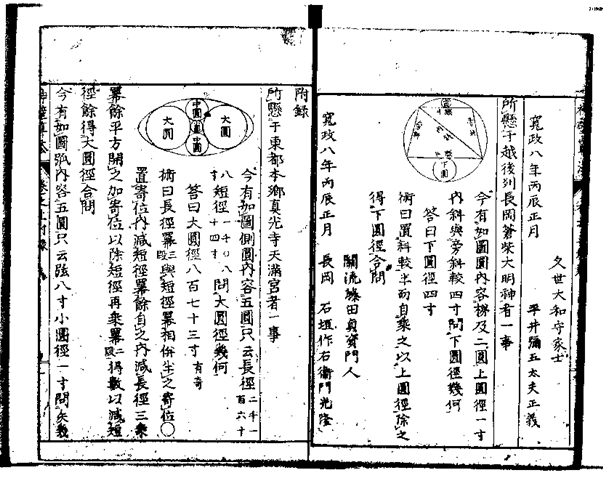 久世大和守家士
平井彌五太夫正義
寛政八年丙辰正月
所懸于越後州長岡蒼柴大明神者一事
今有如圖圓內容梯及二圓上圓徑一寸
內斜與旁斜較四寸問下圓徑幾何
答曰下圓徑四寸
術曰置斜較半而自乘之以上圓徑除之
得下圓徑合問
關流藤田貞資門人
長岡 石垣作右衛門光隆
寛政八年丙辰正月
附錄
所懸于東都本鄉真光寺天滿宮者一事
大圓
中圓
中圓
大圓
今有如圖側圓內容五圓只云長徑
短徑
問大圓徑幾何
答曰大圓徑八百七十三寸有奇
術曰長徑冪與短徑冪相併半之寄位〇
置寄位內減短徑冪餘自之內減長徑三乘
冪餘平方開之加寄位以除短徑再乘冪得數以減短
徑餘得大圓徑合問
今有如圖弧內容五圓只云弦八寸小圓徑一寸問矢幾